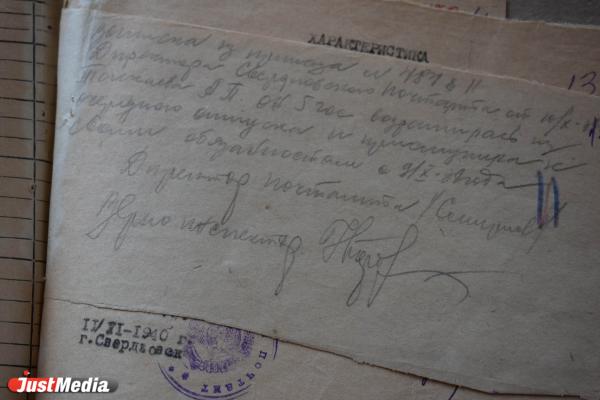 ХАРАКТЕРИСТИКА
Выписка из приказа № 181 § 11
Директора Свердловского почтамта от 10/X-
А П. от 5 гос возвратилась из
очередного отпуска и приступила к
своим обязанностям с 9/X-
Директор почтамта /Смирнов/
Врио инспектор
13
11/XI-1940 г.
г.Свердловск
ПОЧТАМТ
JustMedia